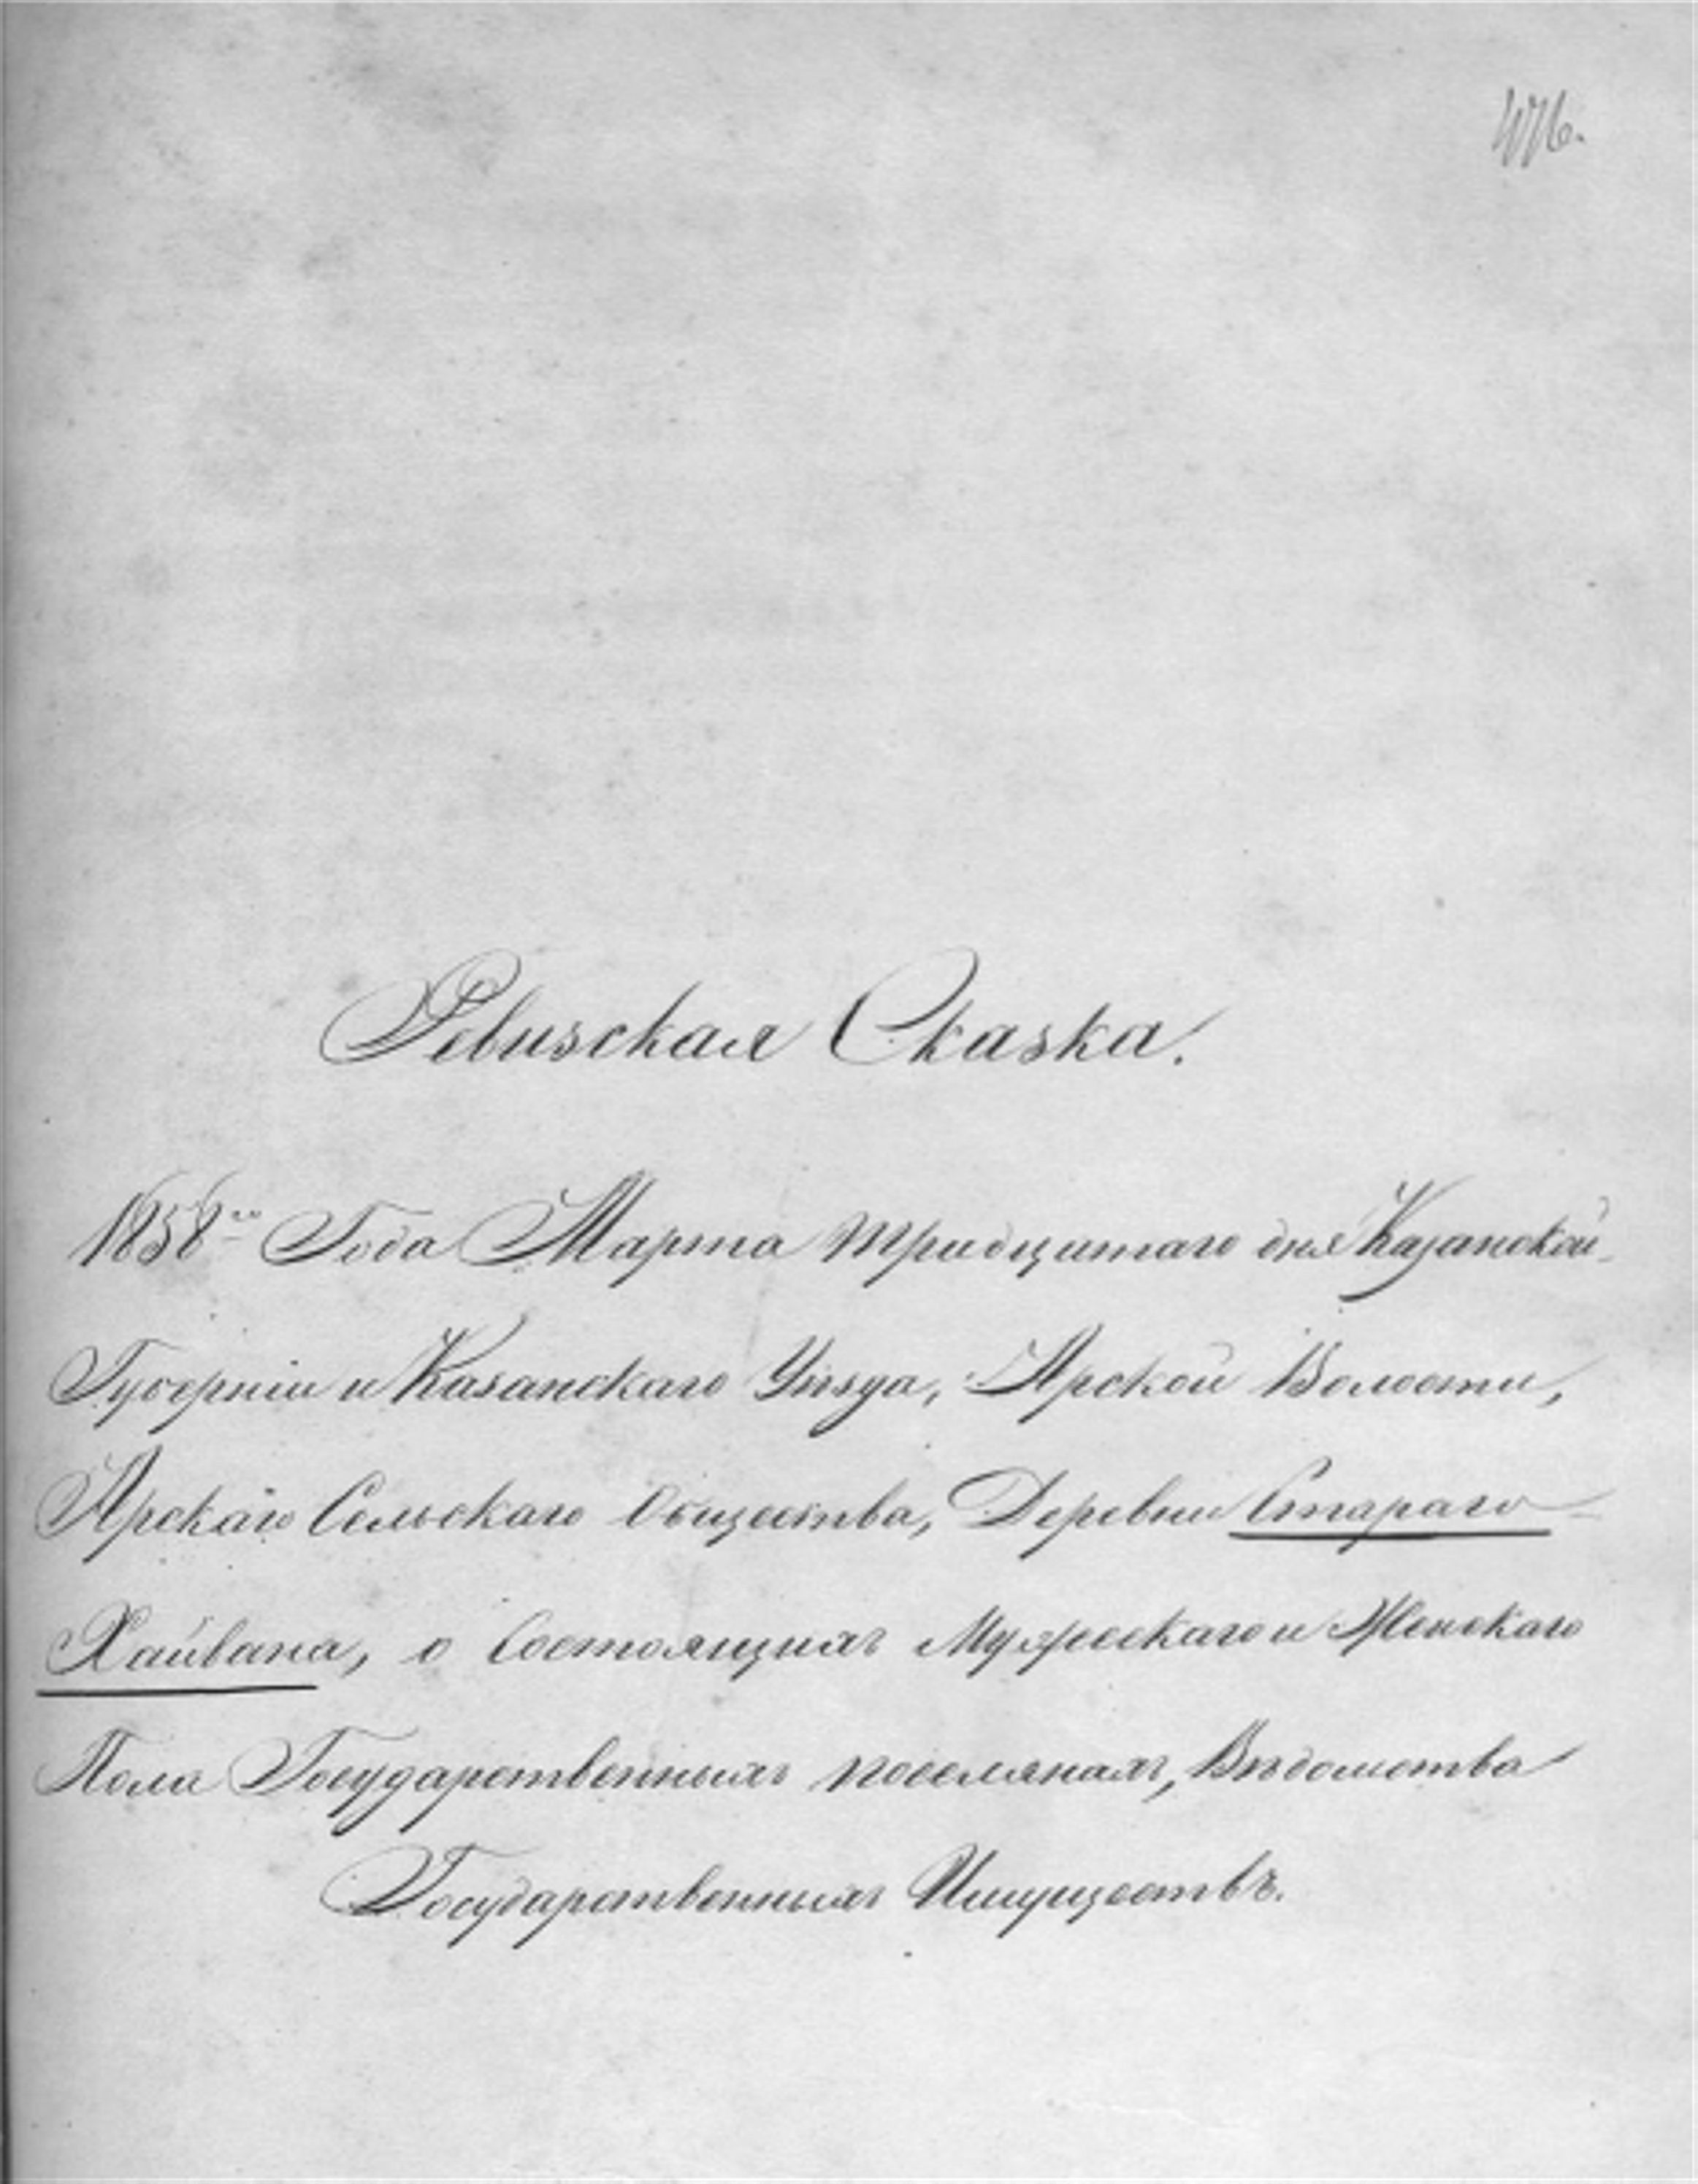 Ревизская Сказка.
1858го Года Марта тридцатаго дня Казанской
Губерніи и Казанскаго Уѣзда, Арской Волости,
Арскаго Сельскаго Общества, Деревни Стараго
Хайвана, о состоящихъ Мужескаго и Женскаго
Пола Государственныхъ поселянахъ, Вѣдомства
Государственныхъ Имуществъ.